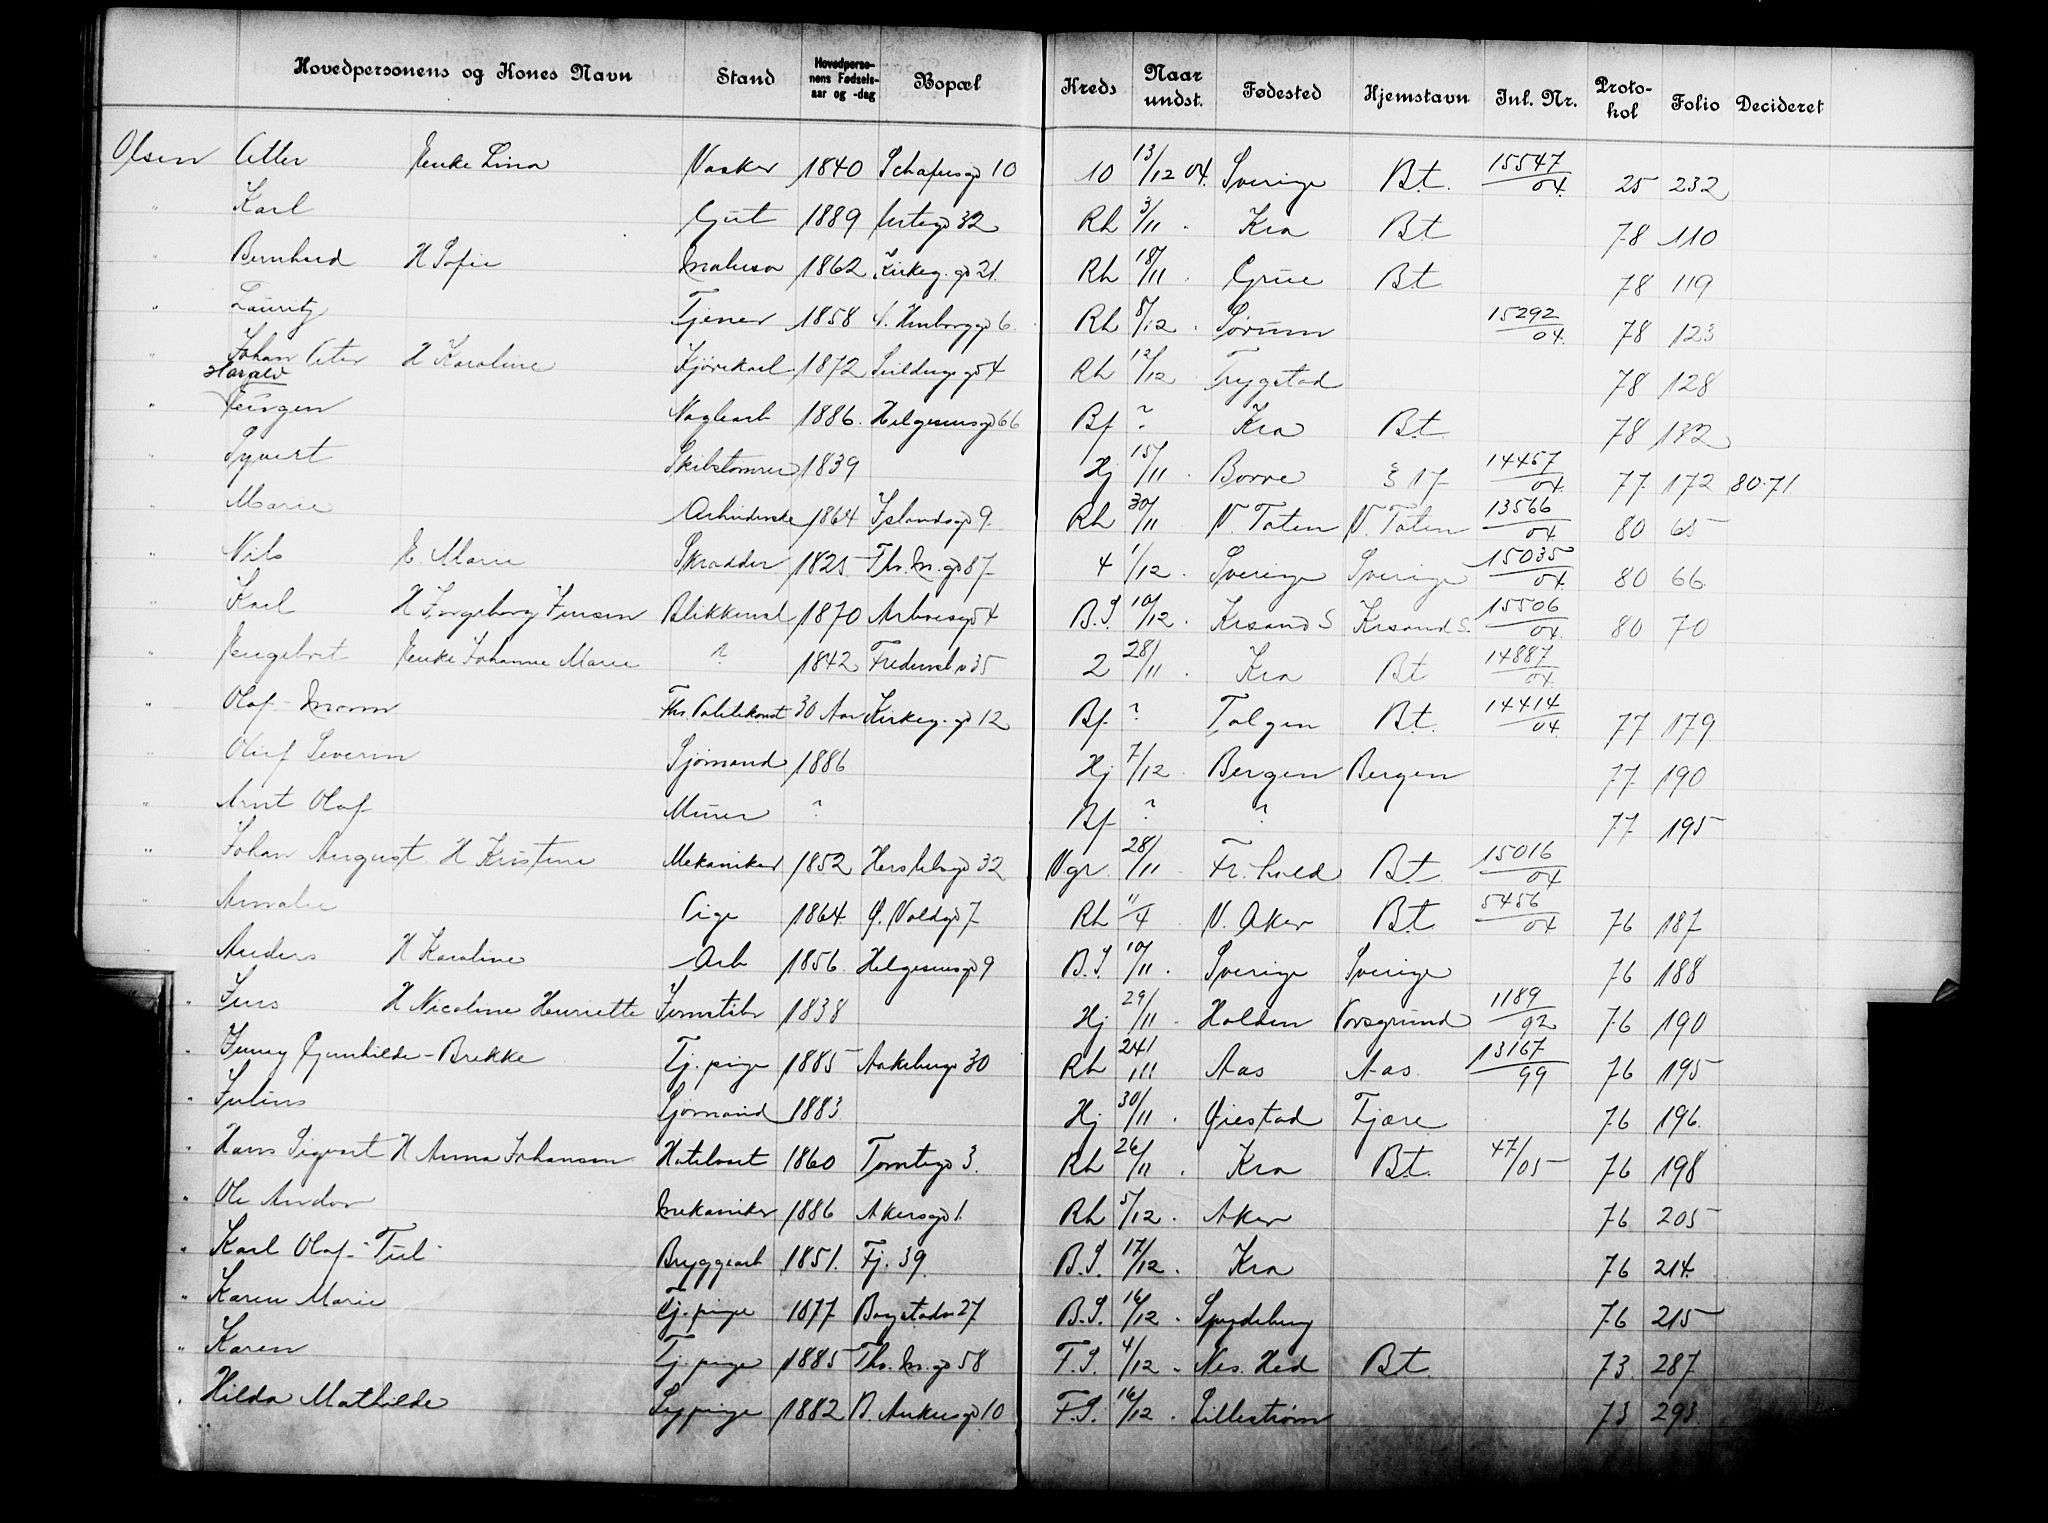 Hovedpersonens og Kones Navn Stand Hovedpersonens Fødselsaar og -dag Bopæl Kreds Naar undst. Fødested Hjemstavn Jnl. Nr. Protokol Folio Decideret
Olsen Enke Lina Vasker 1840 10 13/12 04. Sverige Bt. 15547/04. 25 232
" Karl Gut 1889 32 Rh 3/11 . Kra Bt 78 110
" Bernhard H Sofie 1862 Kirkeg.gd 21. Rh 18/11 Grue Bt 78 119
" Lauritz Tjener 1858 6. Rh 8/12 . Sørum 15292/04. 78 123
" Johan H Karoline Kjørekarl 1872 54 Rh 12/12 . Trygstad 78 128
" Harald Jürgen Naglearb 1886. Helgesensgd 66 Bf ? . Kra Bt. 78 132
" Syvert Skibstømrer 1839 Hj 15/11 . Borre § 17 14457/04. 77 172 80.71
" Marie Arbeiderske 1864 Islandsgd 9. Rh 30/11 V. Toten V. Toten 13566/04. 80 65
" Nils E. Marie Skrædder 1825 Th. M. gd 87 4 1/12 . Sverige Sverige 15035/04. 80 66.
" Karl H Ingeborg Jensen Blikkensl 1870 54 B.S. 10/12 . Krsand S Krsand S. 15506/04. 80 70
" Engebret Enke Johanne Marie ? 1842 35 2 28/11 . Kra Bt 14887/04.
" Olof - Moen Fhv. Politikonst 30 Aar Kirkeg. gd 12 Bf ? Tolgen Bt. 14414/04. 77 179.
" Oluf Severin Sjømand 1886 Hj 7/12 . Bergen Bergen 77 190
" Arnt Olaf Murer ? Bf ? ? 77 195
" Johan August H Kristine Mekaniker 1852 Herslebsgd 32 V.gr. 28/11 Fr.hald Bt. 15016/04 77
" Amalie Pige 1864. Ø. Voldgd 7 Rh 11/4 V. Aker Bt. 5456/04 76 187
" Anders H Karoline Arb 1856. Helgesensgd 9 B.S. 10/11 . Sverige Sverige 76 188
" Jens H Nicoline Henriette Jernstøber 1838 Hj 29/11 . Holden Porsgrund 1189/92 76 190
" Jenny Gunhilde - Brekke Tj. pige 1885 Aakebergv 30 Rh 24/11 Aas Aas. 13167/99 76 195
" Julius Sjømand 1883. Hj 30/11 . Øiestad Fjære 76 196
" Hans Sigvart H Anna Johansen 1860 Tomtegd 3. Rh 26/11 . Kra Bt. 47/05 76 198
" Ole Andor Mekaniker 1886 Akersgd 1. Rh 5/12 . Aker 76 205
" Karl Olaf - Bryggearb 1851. Fj. 39. B.S. 17/12 . Kra 76 214.
" Karen Marie Tj. pige 1877 Bogstadv 27 B.S. 16/12 . Spydeberg 76 215
" Karen Tj. pige 1885 Th. M. gd 58 F.S. 4/12 . Nes. Hed Bt. 73. 287
" Hilda Mathilde Sypige 1882 B. Ankersgd 10 F.S. 16/12 . Lillestrøm 73 293.